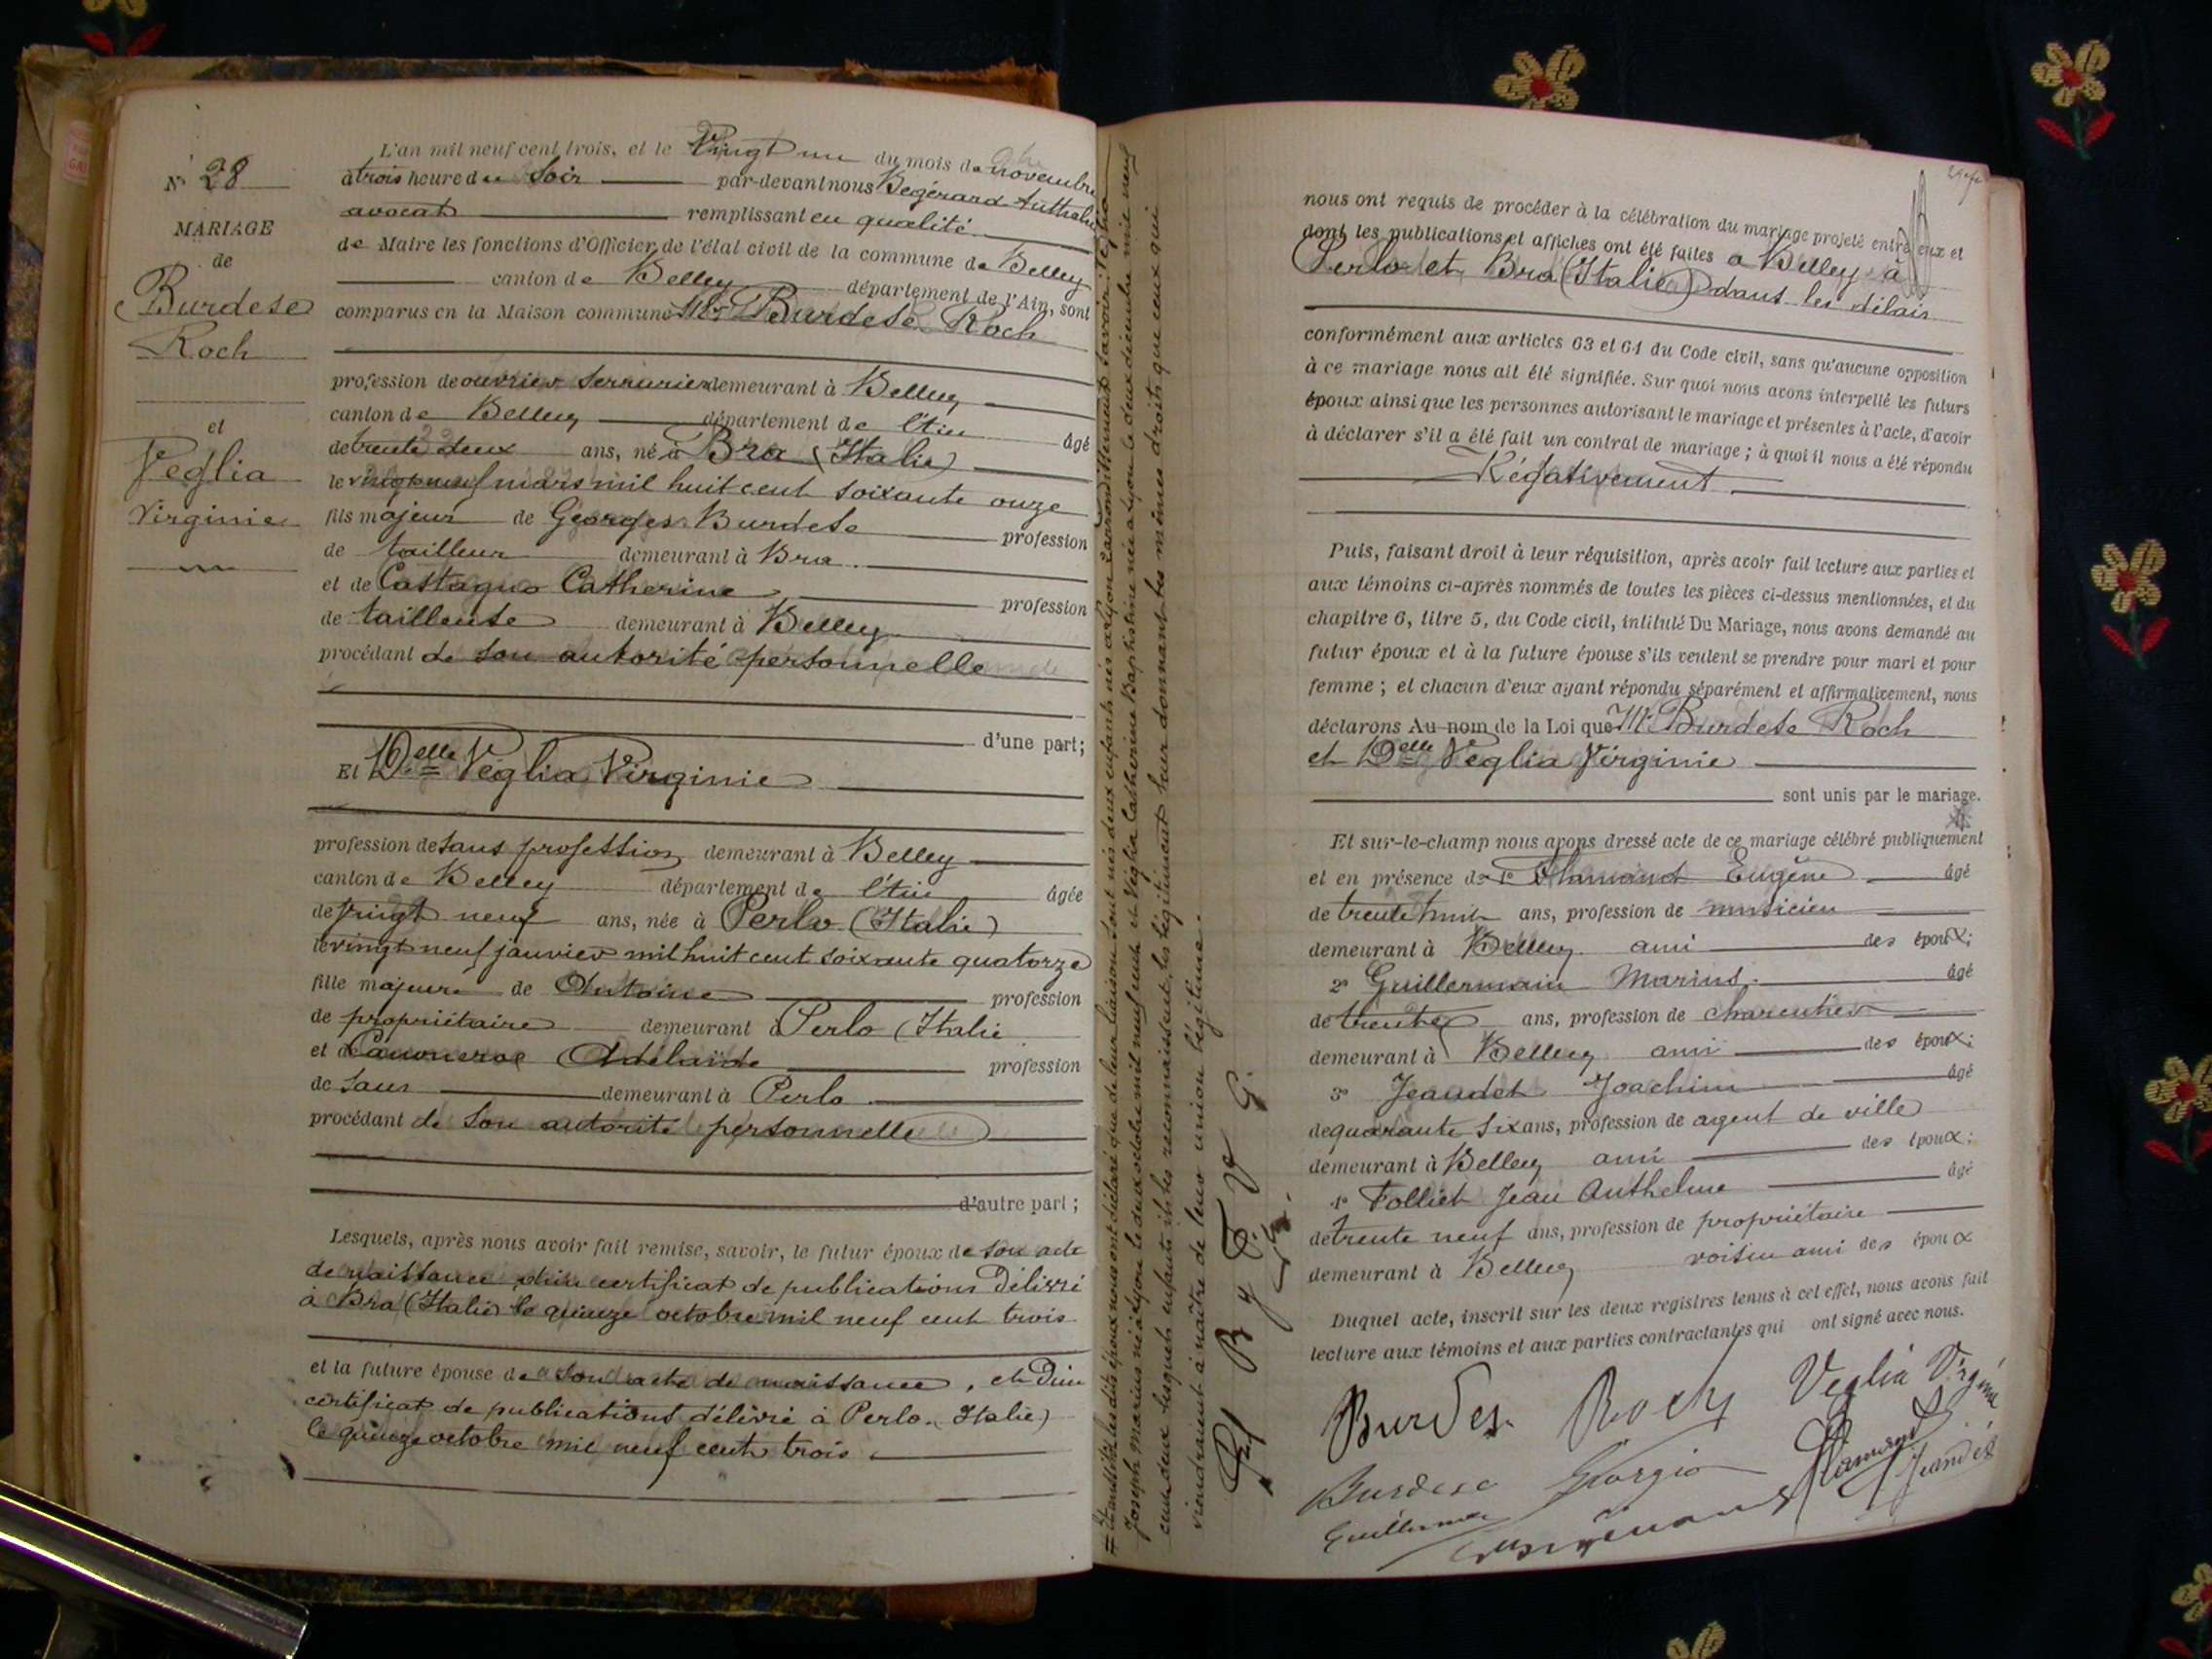 N° 28
MARIAGE
de
Burdese
Roch
et
Veglia
Virginie
L'an mil neuf cent trois, et le Vingt un du mois de novembre
à trois heure du soir par-devant nous Bégérard Anthelme
avocat remplissant en qualité
de Maire les fonctions d'Officier de l'état civil de la commune de Belley
canton de Belley département de l'Ain, sont
comparus en la Maison commune Mr Burdese Roch
profession de ouvrier serrurier demeurant à Belley
canton de Belley département de l'Ain âgé
de trente deux ans, né à Bra (Italie)
le vingt neuf mars mil huit cent soixante onze
fils majeur de Georges Burdese profession
de tailleur demeurant à Bra
et de Castagno Catherine profession
de tailleuse demeurant à Belley
procédant de son autorité personnelle
d'une part;
Et Delle Veglia Virginie
profession de sans profession demeurant à Belley
canton de Belley département de l'Ain âgée
de vingt neuf ans, née à Perlo (Italie)
le vingt neuf janvier mil huit cent soixante quatorze
fille majeure de Antoine profession
de propriétaire demeurant à Perlo (Italie
et de Canonerae Adélaïde profession
de sans demeurant à Perlo
procédant de son autorité personnelle
d'autre part;
Lesquels, après nous avoir fait remise, savoir, le futur époux de son acte
de naissance d'un certificat de publications délivré
à Bra (Italie) le quinze octobre mil neuf cent trois
et la future épouse de son acte de naissance, et d'un
certificat de publications délivré à Perlo (Italie)
le quinze octobre mil neuf cent trois
Et aussitôt les dits époux nous ont déclaré que de leur liaison sont nés deux enfants nés à Lyon arrondissement savoir:
Joseph Marius né à Lyon le deux octobre mil neuf cent et Véglia Catherine Baptistine née à Lyon le deux décembre mil neuf
cent deux lesquels enfants ils les reconnaissent, les légitiment leur donnant les mêmes droits que ceux qui
viendraient à naître de leur union légitime.
B y F V G
nous ont requis de procéder à la célébration du mariage projeté entre eux et
dont les publications et affiches ont été faites à Belley à
Perlo et Bra (Italie) dans les délais
conformément aux articles 63 et 64 du Code civil, sans qu'aucune opposition
à ce mariage nous ait été signifiée. Sur quoi nous avons interpellé les futurs
époux ainsi que les personnes autorisant le mariage et présentes à l'acte, d'avoir
à déclarer s'il a été fait un contrat de mariage; à quoi il nous a été répondu
Négativement
Puis, faisant droit à leur réquisition, après avoir fait lecture aux parties et
aux témoins ci-après nommés de toutes les pièces ci-dessus mentionnées, et du
chapitre 6, titre 5, du Code civil, intitulé Du Mariage, nous avons demandé au
futur époux et à la future épouse s'ils veulent se prendre pour mari et pour
femme; et chacun d'eux ayant répondu séparément et affirmativement, nous
déclarons Au nom de la Loi que Mr Burdese Roch
et Delle Veglia Virginie
sont unis par le mariage.
Et sur-le-champ nous avons dressé acte de ce mariage célébré publiquement
et en présence de 1° Flamand Eugène âgé
de trente huit ans, profession de musicien
demeurant à Belley ami des époux;
2° Guillermain Marius âgé
de trente ans, profession de charcutier
demeurant à Belley ami des époux;
3° Jeandet Joachim âgé
de quarante six ans, profession de agent de ville
demeurant à Belley ami des époux;
4° Folliet Jean Anthelme âgé
de trente neuf ans, profession de propriétaire
demeurant à Belley voisin ami des époux
Duquel acte, inscrit sur les deux registres tenus à cet effet, nous avons fait
lecture aux témoins et aux parties contractantes qui ont signé avec nous.
Burdes Roch Veglia Virginie
Burdese Giorgio Flamand Jeandet
Guillermain